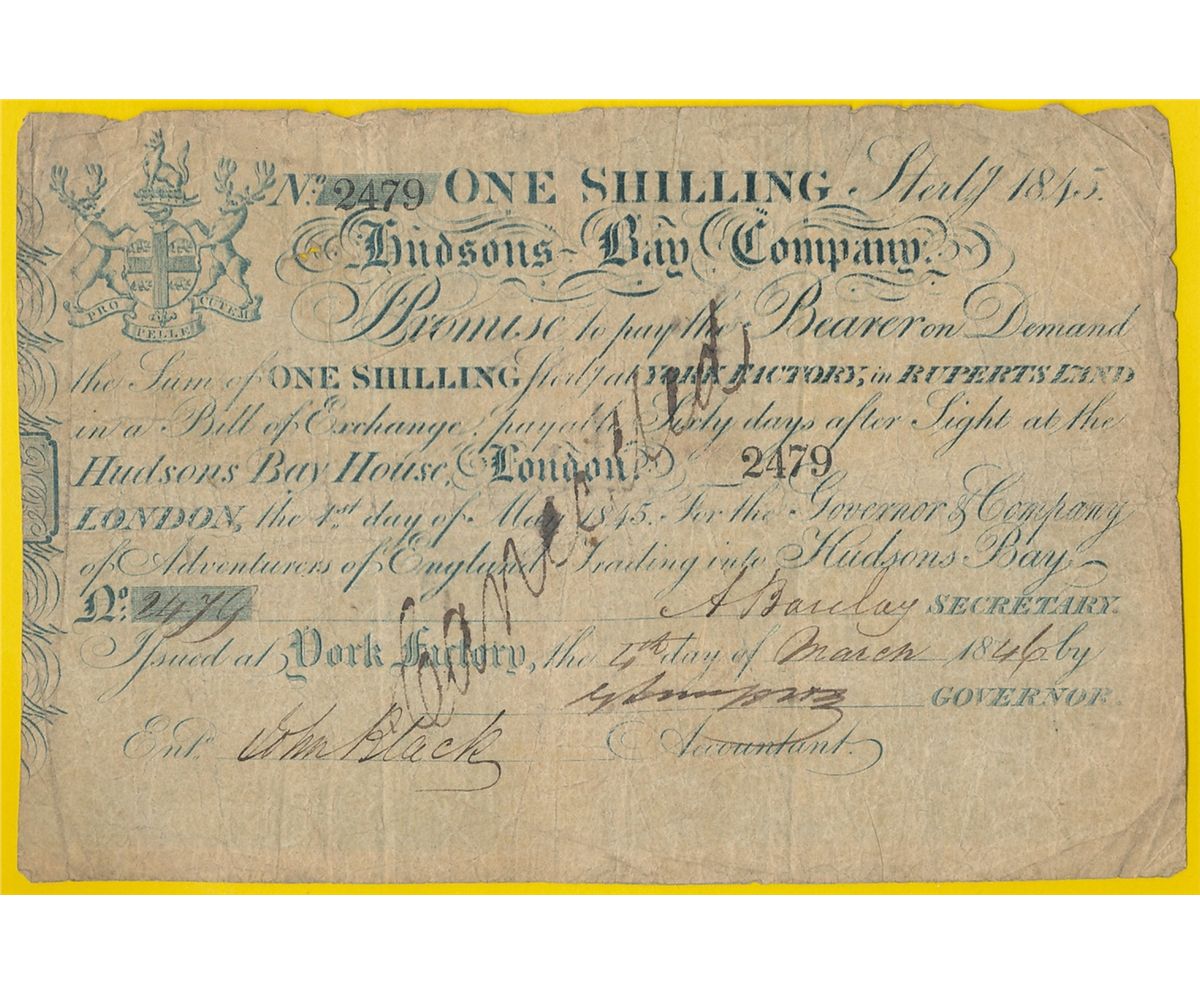 No. 2479 ONE SHILLING Sterlg 1845.
Hudsons Bay Company.
PRO PELLE CUTEM
Promise to pay the Bearer on Demand
the Sum of ONE SHILLING Sterlg at YORK FACTORY, in RUPERTS LAND
in a Bill of Exchange payable Sixty days after Sight at the
Hudsons Bay House, London. 2479
LONDON, the 1st day of May 1845. For the Governor & Company
of Adventurers of England Trading into Hudsons Bay
No. 2479 A Barclay SECRETARY.
Issued at York Factory, the 4th day of March 1846 by
GOVERNOR.
Entd. John Black Accountant.
Cancelled